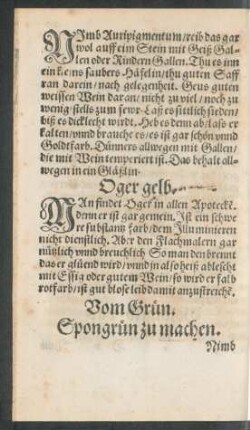 NImb Auripigmentum / reib das gar
wol auff eim Stein mit Geiß Gal-
len oder Rindern Gallen. Thu es inn
ein kleins saubers Häfelin / thu guten Saff
ran darein / nach gelegenheit. Geus guten
weissen Wein daran / nicht zu viel / noch zu
wenig / stells zum fewr / Laß es sittlich sieden /
biß es dicklecht wirdt. Heb es denn ab / laß er
kalten / vnnd braucht es / es ist gar schön vnnd
Goldtfarb. Dünners allwegen mit Gallen /
die mit Wein temperiert ist. Das behalt all-
wegen in ein Gläßlin.
Oger gelb.
MAn findet Oger in allen Apoteckē.
denn er ist gar gemein. Ist ein schwe
re substantz farb / dem Illuminieren
nicht dienstlich. Aber den Flachmalern gar
nützlich vnnd breuchlich. So man den brennt
das er glüend wird / vnnd in also heiß ablescht
mit Essig oder gutem Wein / so wird er falb
rotfarb / ist gut blose leib damit anzustreichē.
Vom Grün.
Spongrün zu machen.
Nimb